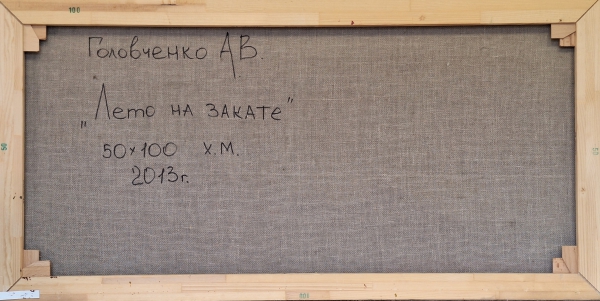 100
Головченко АВ.
„Лето на закате"
50х100 х.м.
2013г.
50
50
100